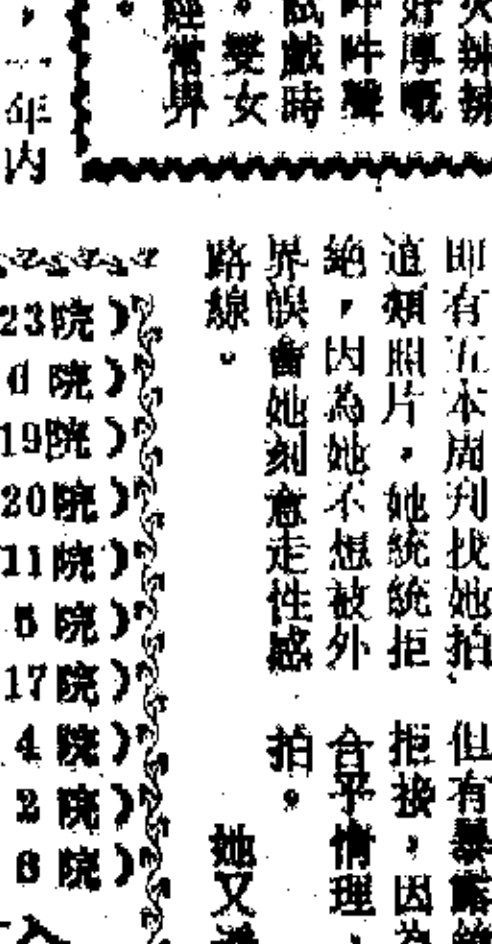 辣辣
好厚嘅
吽吽聲
試戲時
。雙女
經常畀
。
，一年內
即有五本周刋找她拍
這類照片，她統統拒
絕，因為她不想被外
界誤會她刻意走性感
路線。
但有暴露
拒接，因為
合乎情理，
拍。
她又
23院）
6院）
19院）
20院）
11院）
5院）
17院）
4院）
2院）
6院）